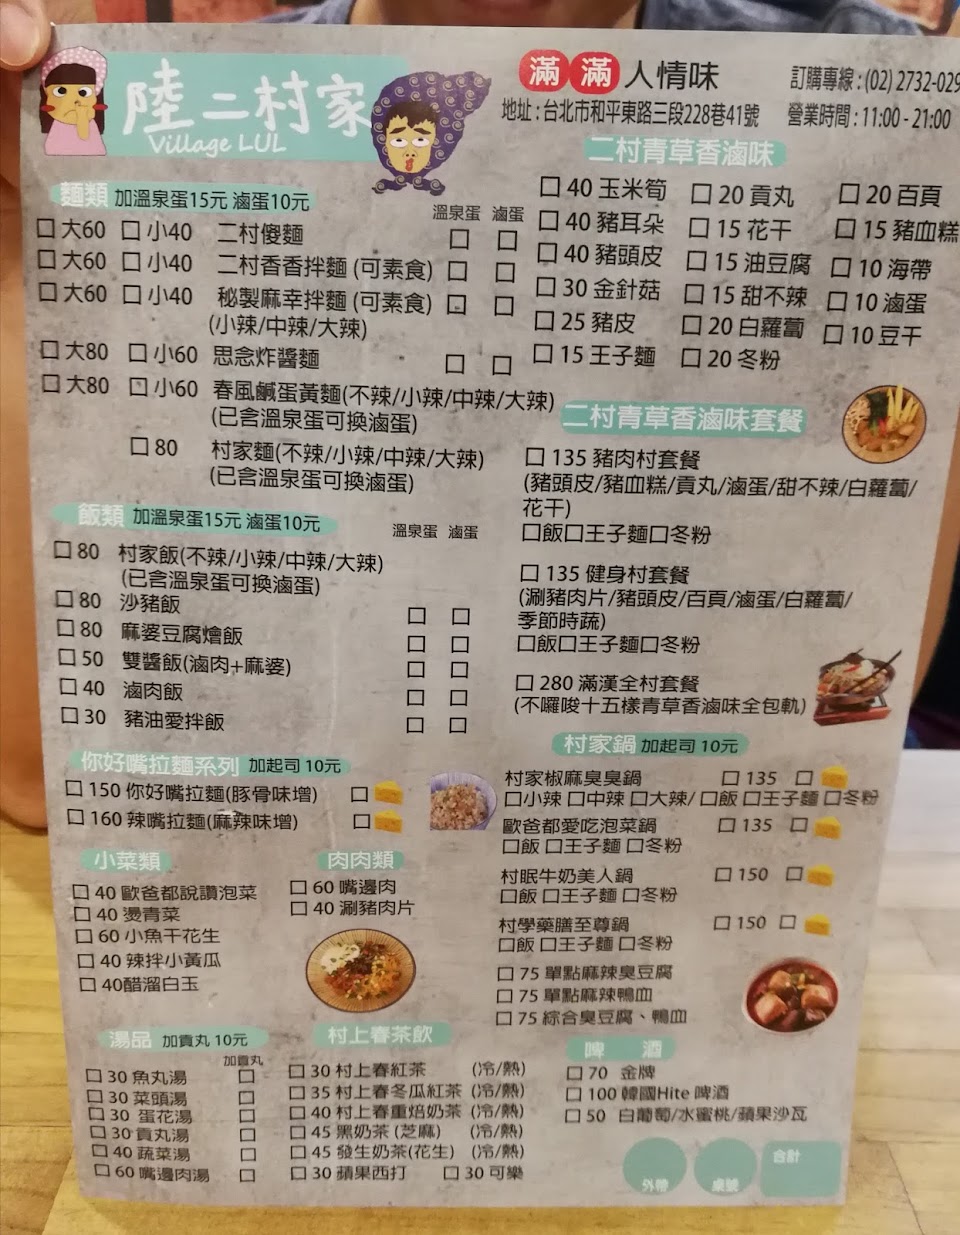 陸二村家
Village LUL
滿滿人情味
訂購專線:(02) 2732-029
地址:台北市和平東路三段228巷41號
營業時間:11:00 - 21:00
麵類 加溫泉蛋15元 滷蛋10元
溫泉蛋 滷蛋
□大60 □小40 二村傻麵 □ □
□大60 □小40 二村香香拌麵(可素食) □ □
□大60 □小40 秘製麻幸拌麵(可素食) □ □
(小辣/中辣/大辣)
□大80 □小60 思念炸醬麵 □ □
□大80 □小60 春風鹹蛋黃麵(不辣/小辣/中辣/大辣)
(已含溫泉蛋可換滷蛋)
□80 村家麵(不辣/小辣/中辣/大辣)
(已含溫泉蛋可換滷蛋)
飯類 加溫泉蛋15元 滷蛋10元
溫泉蛋 滷蛋
□80 村家飯(不辣/小辣/中辣/大辣)
(已含溫泉蛋可換滷蛋)
□80 沙豬飯 □ □
□80 麻婆豆腐燴飯 □ □
□50 雙醬飯(滷肉+麻婆) □ □
□40 滷肉飯 □ □
□30 豬油愛拌飯 □ □
你好嘴拉麵系列 加起司 10元
□150 你好嘴拉麵(豚骨味增) □
□160 辣嘴拉麵(麻辣味增) □
小菜類
□40 歐爸都說讚泡菜
□40 燙青菜
□60 小魚干花生
□40 辣拌小黃瓜
□40醋溜白玉
肉肉類
□60 嘴邊肉
□40 涮豬肉片
湯品 加貢丸 10元
加貢丸
□30 魚丸湯 □
□30 菜頭湯 □
□30 蛋花湯 □
□30 貢丸湯 □
□40 蔬菜湯 □
□60 嘴邊肉湯 □
村上春茶飲
□30 村上春紅茶 (冷/熱)
□35 村上春冬瓜紅茶 (冷/熱)
□40 村上春重焙奶茶 (冷/熱)
□45 黑奶茶(芝麻) (冷/熱)
□45 發生奶茶(花生) (冷/熱)
□30 蘋果西打 □30 可樂
二村青草香滷味
□40 玉米筍 □20 貢丸 □20 百頁
□40 豬耳朵 □15 花干 □15 豬血糕
□40 豬頭皮 □15 油豆腐 □10 海帶
□30 金針菇 □15 甜不辣 □10 滷蛋
□25 豬皮 □20 白蘿蔔 □10 豆干
□15 王子麵 □20 冬粉
二村青草香滷味套餐
□135 豬肉村套餐
(豬頭皮/豬血糕/貢丸/滷蛋/甜不辣/白蘿蔔/
花干)
□飯□王子麵□冬粉
□135 健身村套餐
(涮豬肉片/豬頭皮/百頁/滷蛋/白蘿蔔/
季節時蔬)
□飯□王子麵□冬粉
□280 滿漢全村套餐
(不囉唆十五樣青草香滷味全包軌)
村家鍋 加起司 10元
村家椒麻臭臭鍋 □135 □
□小辣 □中辣 □大辣/ □飯 □王子麵 □冬粉
歐爸都愛吃泡菜鍋 □135 □
□飯 □王子麵 □冬粉
村眠牛奶美人鍋 □150 □
□飯 □王子麵 □冬粉
村學藥膳至尊鍋 □150 □
□飯 □王子麵 □冬粉
□75 單點麻辣臭豆腐
□75 單點麻辣鴨血
□75 綜合臭豆腐、鴨血
啤酒
□70 金牌
□100 韓國Hite 啤酒
□50 白葡萄/水蜜桃/蘋果沙瓦
外帶 桌號 合計